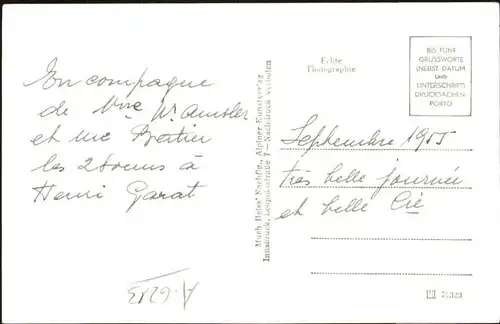 En compagne
de Mme W.
et Mc
les 2 à
Henri Garat
Echte
Photographie
BIS FÜNF
GRUSSWORTE
(NEBST DATUM
UND
UNTERSCHRIFT)
DRUCKSACHEN-
PORTO
Much Heiss' Nachflg., Alpiner Kunstverlag
Innsbruck, Leopoldstraße 7 — Nachdruck verboten
Septembre 1955
très belle journée
et belle Cie